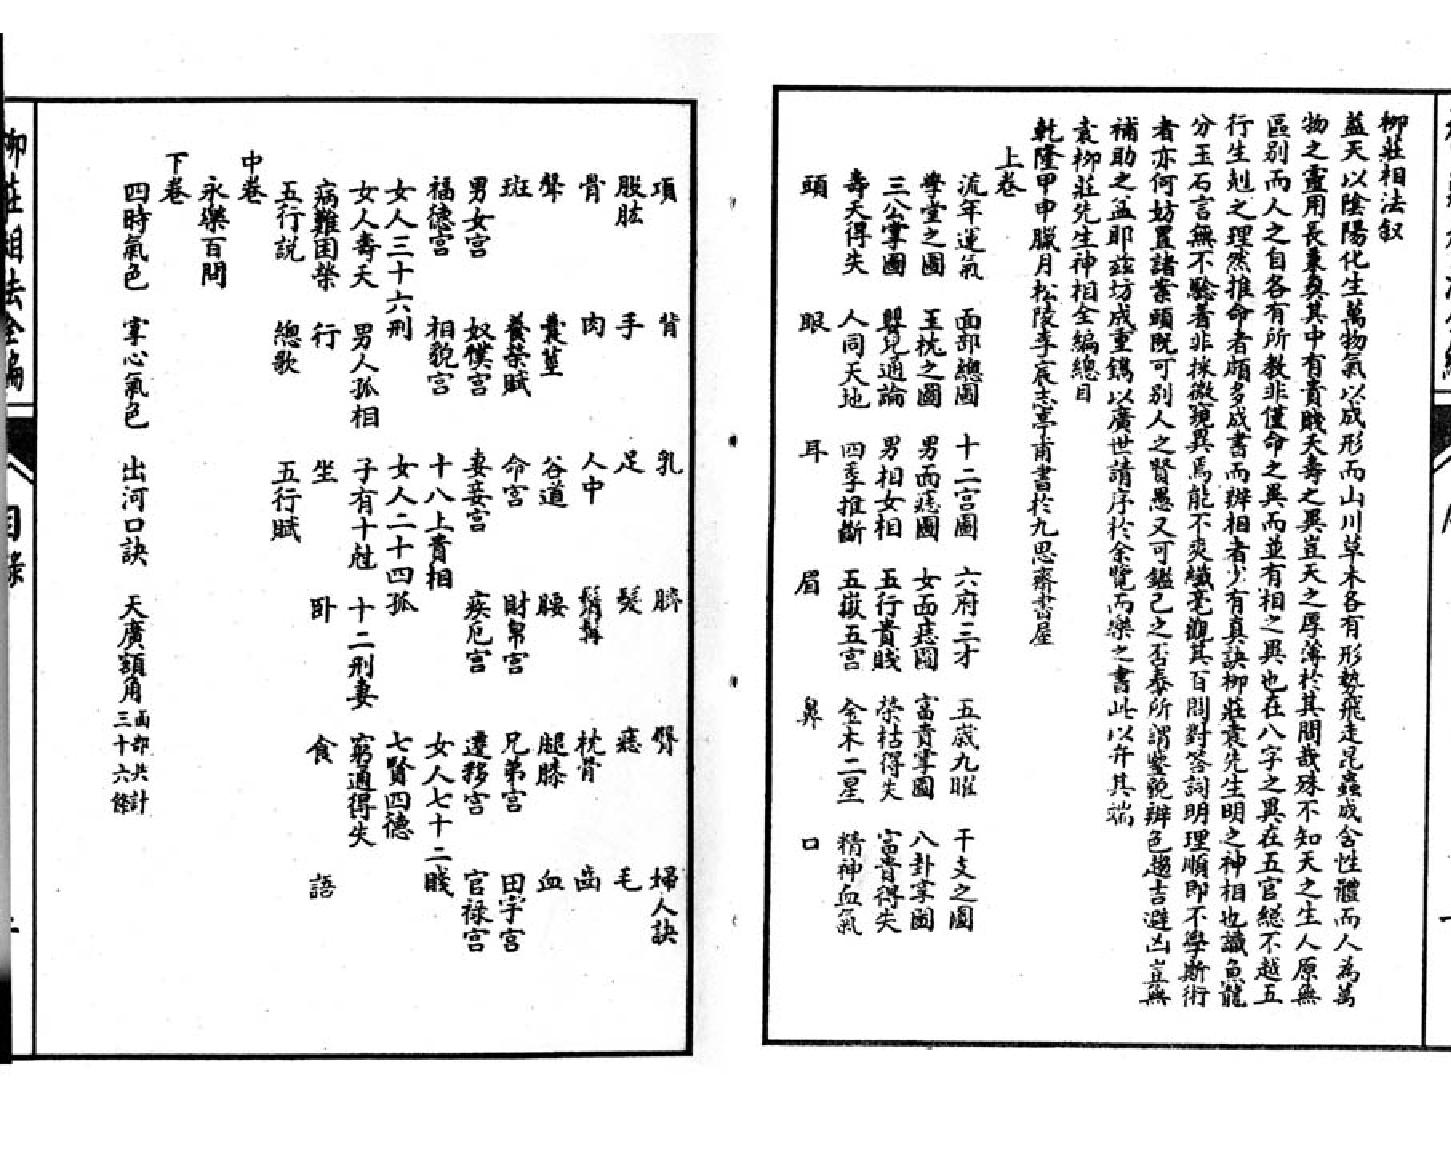 柳莊相法叙
蓋天以陰陽化生萬物氣以成形而山川草木各有形勢飛走昆蟲咸含性體而人為萬
物之靈用長稟奭其中有貴賤夭壽之異豈天之厚薄於其間哉殊不知天之生人原無
區别而人之自各有所教非僅命之異而並有相之異也在八字之異在五官總不越五
行生剋之理然推命者頗多成書而辨相者少有真訣柳莊袁先生明之神相也識魚龍
分玉石言無不驗者非採微窺異焉能不爽纖毫觀其百問對答詞明理順即不學斯術
者亦何妨置諸案頭既可别人之賢愚又可鑑己之否泰所謂鑒貌辨色趨吉避凶豈無
補助之益耶兹坊成重鐫以廣世請序於余覽而樂之書此以弁其端
袁柳莊先生神相全編總目
乾隆甲申臘月松陵李宸志亭甫書於九思齋書屋
上卷
流年運氣 面部總圖 十二宫圖 六府三才 五嶽九曜 干支之圖
學堂之圖 玉枕之圖 男面痣圖 女面痣圖 富貴掌圖 八卦掌圖
三公掌圖 嬰兒通論 男相女相 五行貴賤 榮枯得失 富貴得失
壽夭得失 人同天地 四季推斷 五嶽五宫 金木二星 精神血氣
頭 眼 耳 眉 鼻 口
項 背 乳 臍 臀 婦人訣
股肱 手 足 髮 痣 毛
骨 肉 人中 鬍髯 枕骨 齒
聲 囊莖 谷道 腰 腿膝 血
斑 養榮賦 命宫 財帛宫 兄弟宫 田宇宫
男女宫 奴僕宫 妻妾宫 疾厄宫 遷移宫 官禄宫
福德宫 相貌宫 十八上貴相 女人七十二賤
女人三十六刑 女人二十四孤 七賢四德
女人壽夭 男人孤相 子有十尅 十二刑妻 窮通得失
病難困榮 行 坐 卧 食 語
五行説 總歌 五行賦
中卷
永樂百問
下卷
四時氣色 掌心氣色 出河口訣 天廣額角 面部共計三十六條
柳莊相法全編 目録